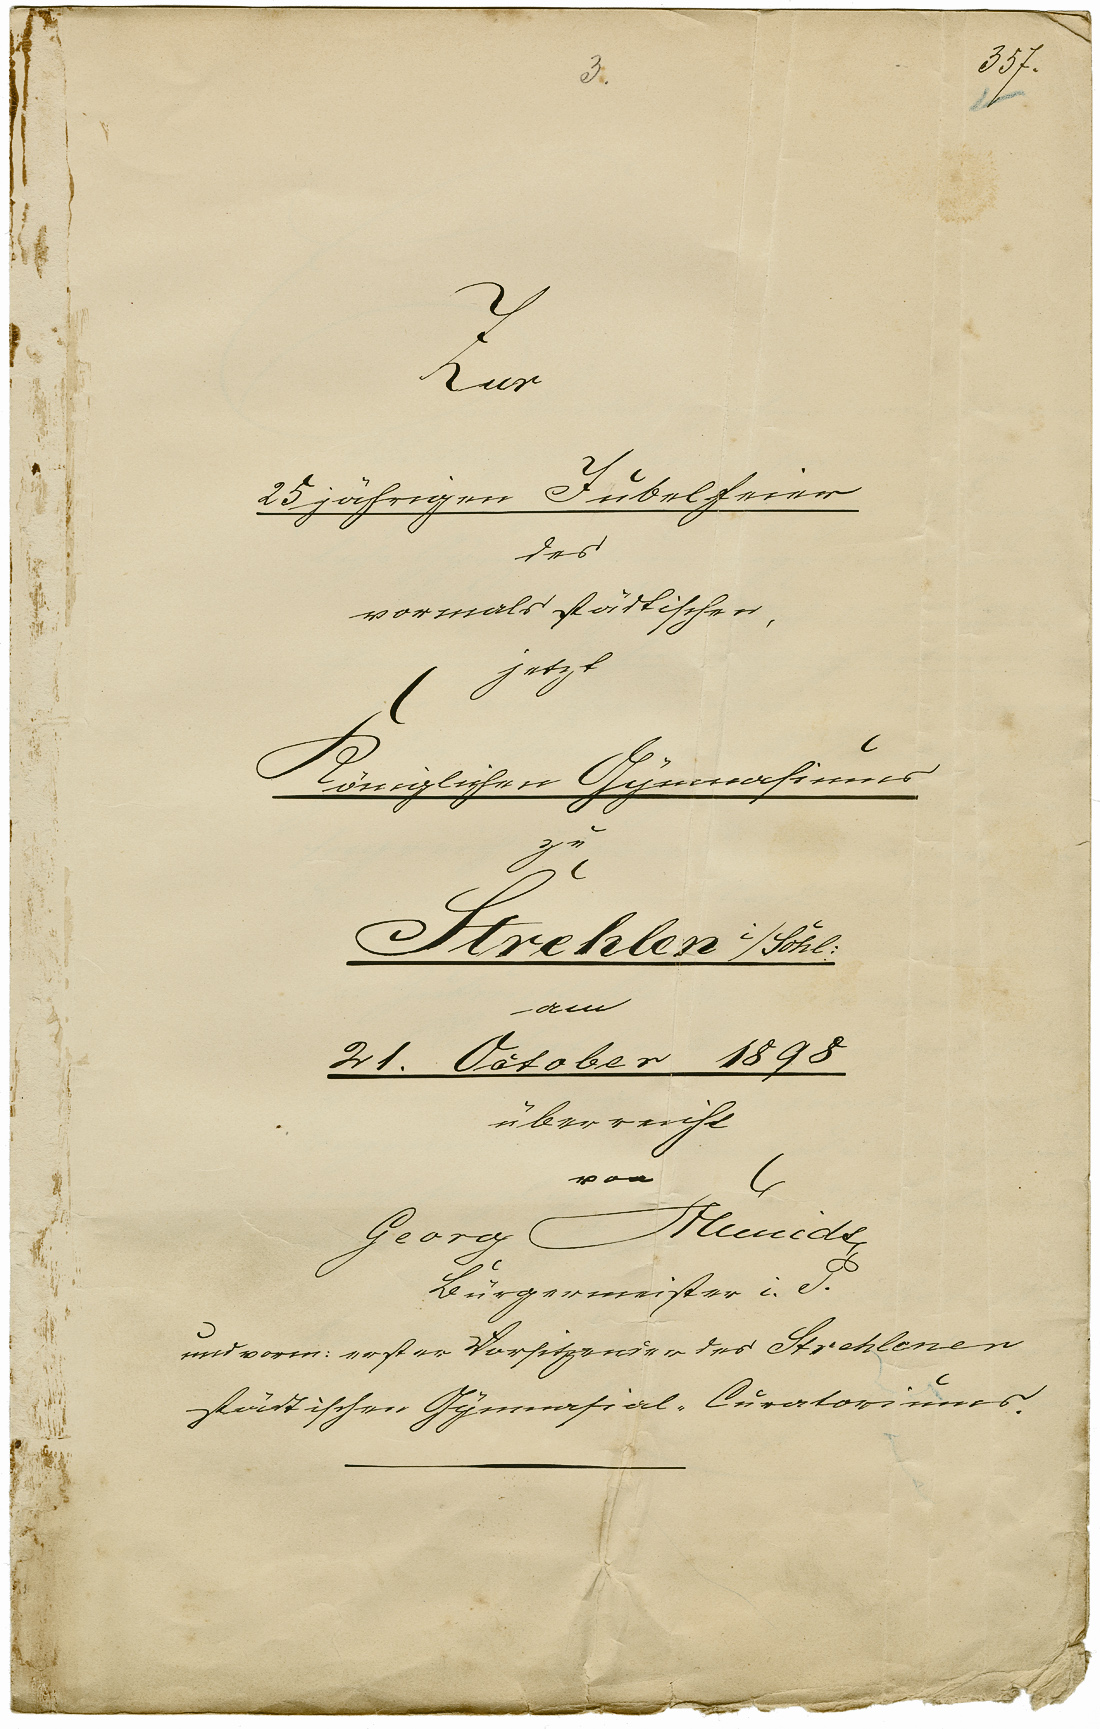 3.
357.
Zur
25 jährigen Jubelfeier
des
vormals städtischen,
jetzt
Königlichen Gymnasiums
zu
Strehlen i/Schl:
am
21. October 1898
überreicht
von
Georg
Bürgermeister i. P.
und vorm: erster Vorsitzender des Strehlener
städtischen Gymnasial-Curatoriums.